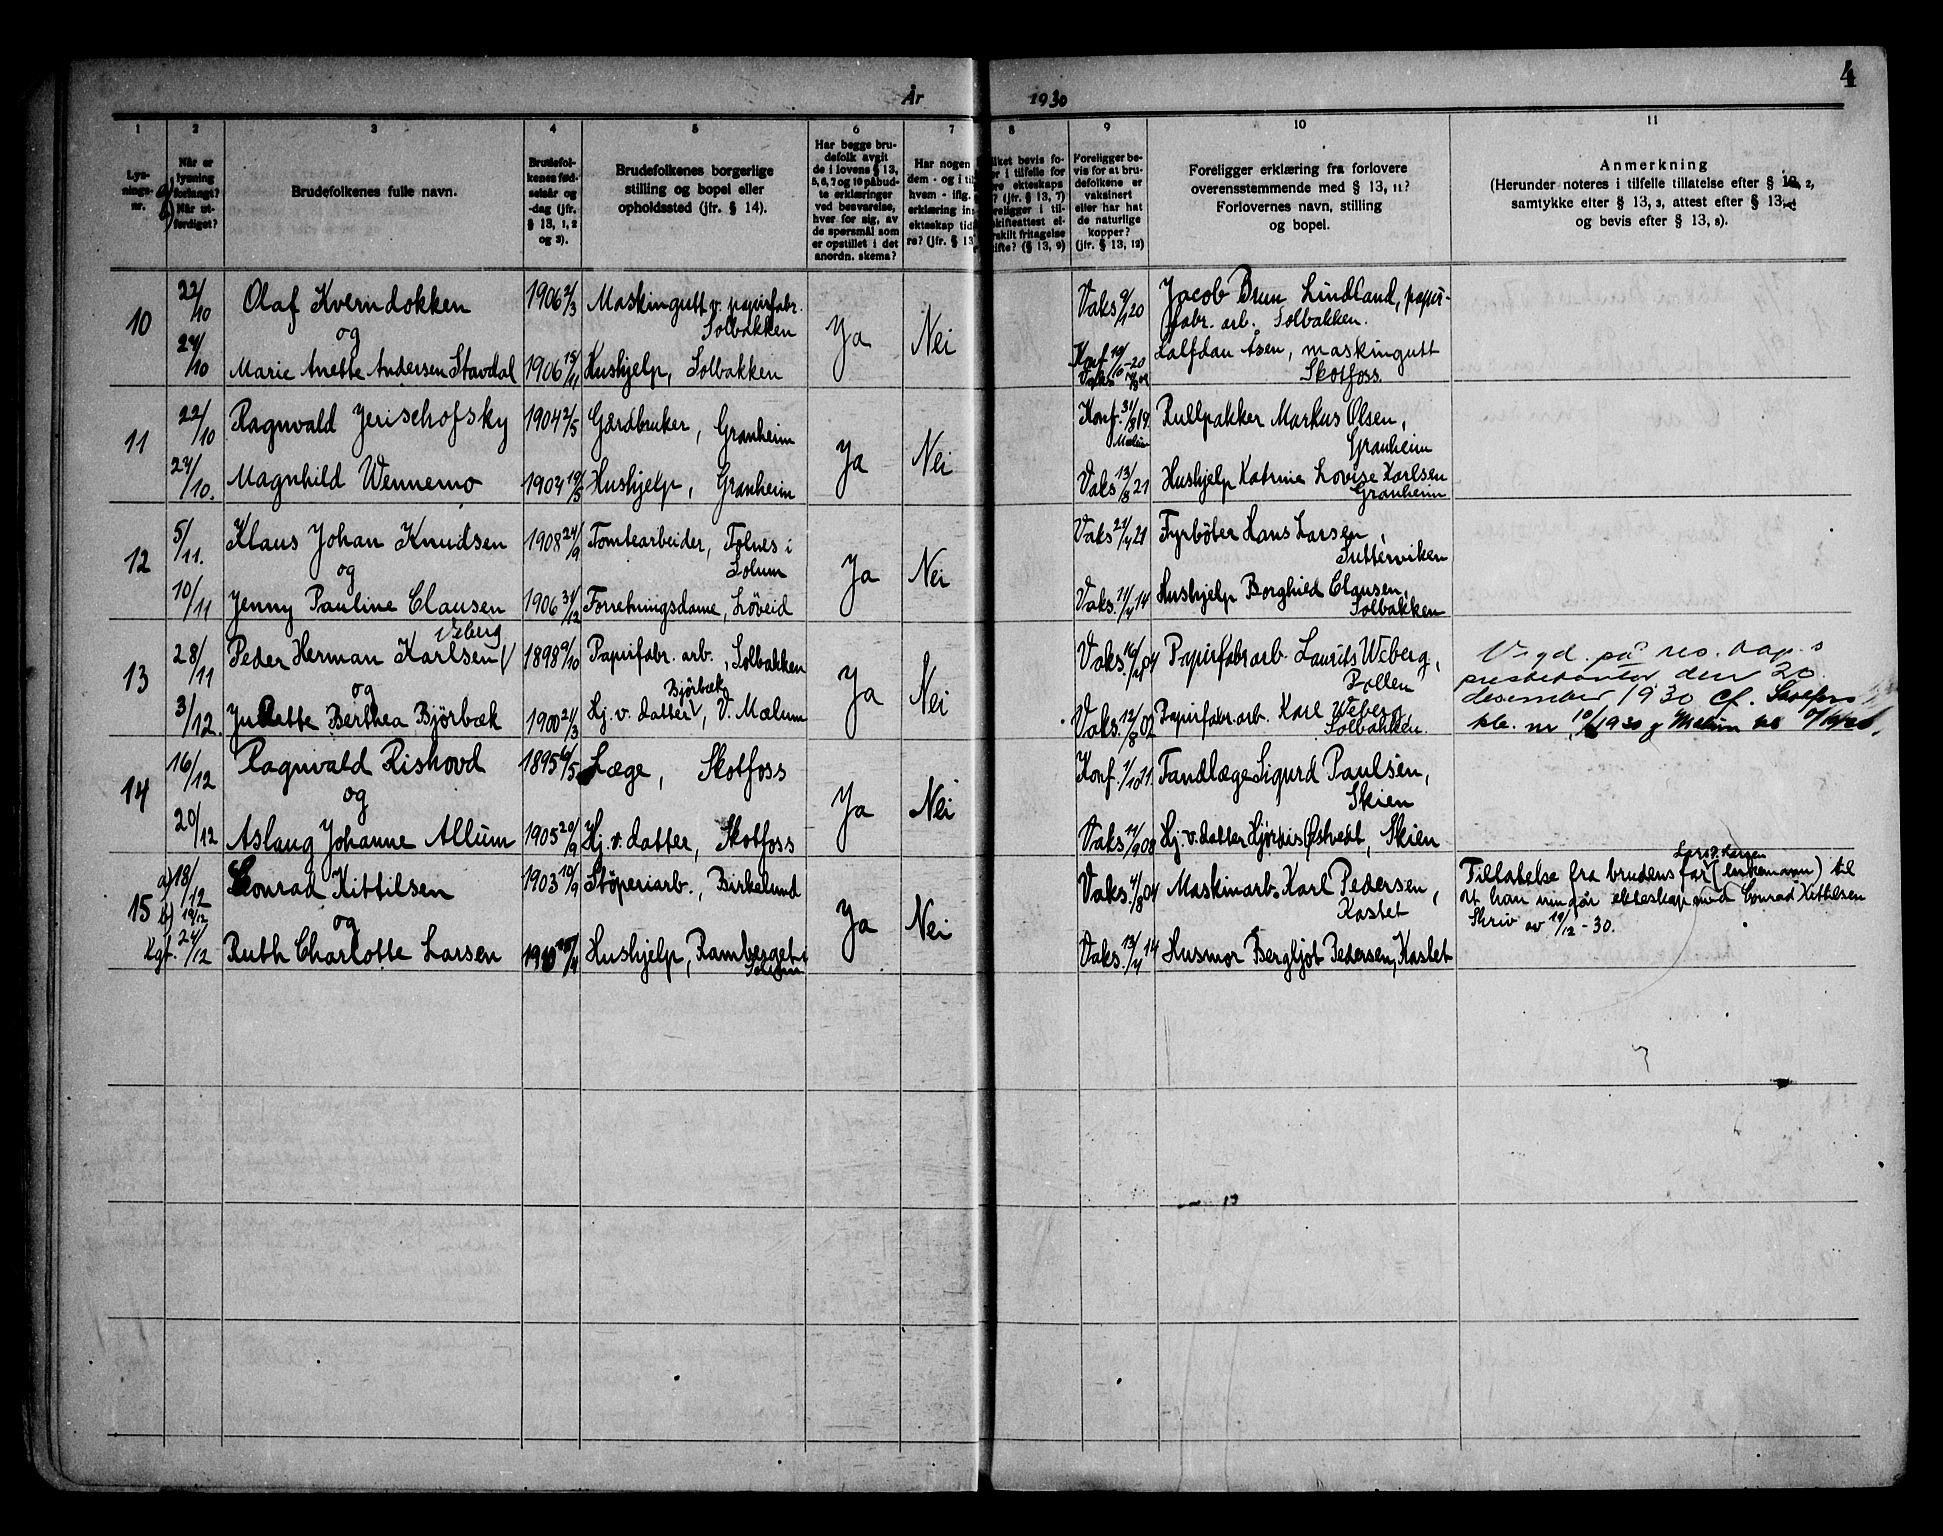 4
År 1930
1 2 3 4 5 6 7 8 9 10 11
Lys-
nings-
nr.
Når er
lysning
forlangt?
Når ut-
ferdiget?
Brudefolkenes fulle navn.
Brudefol-
kenes fød-
selsår og
-dag (jfr.
§ 13, 1, 2
og 3).
Brudefolkenes borgerlige
stilling og bopel eller
opholdssted (jfr. § 14).
Har begge bru-
defolk avgit
de i lovens § 13,
5, 6, 7 og 10 påbud-
te erklæringer
ved besvarelse,
hver for sig, av
de spørsmål som
er opstillet i det
anordn. skema?
Har nogen
dem - og i til
hvem - iflg.
erklæring in
ekteskap tid
re? (jfr. § 13
ilket bevis fo-
r i tilfelle for
re ekteskaps
? (jfr. § 13, 7)
religger i til-
skifteattest el-
rskilt fritagelse
ifte? (§ 13, 9)
Foreligger be-
vis for at bru-
defolkene er
vaksinert
eller har hat
de naturlige
kopper?
(jfr. § 13, 12)
Foreligger erklæring fra forlovere
overensstemmende med § 13, 11?
Forlovernes navn, stilling
og bopel.
Anmerkning
(Herunder noteres i tilfelle tillatelse efter § 12, 2,
samtykke efter § 13, 3, attest efter § 13, 4
og bevis efter § 13, 8).
10
22/10 Olaf Kverndokken 1906 2/3 Maskingutt v. papirfabr.
Solbakken
og
Ja Nei
24/10 Marie Anette Andersen Stavdal 1906 15/11 Hushjelp, Solbakken
Vaks 9/1 20 Jacob Brun Lindland, papir-
fabr. arb. Solbakken.
Konf -20 Halfdan Åsen, maskingutt
Vaks. Skotfoss.
11
22/10 Ragnvald Jerischofsky 1904 2/5 Gårdbruker, Granheim
Ja Nei
24/10. Magnhild Wennemo 1904 19/5 Hushjelp, Granheim
Konf. 31/8 19. Rullpakker Markus Olsen,
Mælum Granheim
Vaks 13/8 21 Hushjelp Katrine Lovise Karlsen
Granheim
12
5/11. Klaus Johan Knudsen 1908 24/9 Tomtearbeider, Tolnes i
Solum
og
Ja Nei
10/11 Jenny Pauline Clausen 1906 31/12 Forretningsdame, Løveid
Vaks 21/4 21 Fyrbøter Hans Larsen,
Sutterviken
Vaks. 11/4 14 Hushjelp Borghild Clausen,
Solbakken
13
Viberg
28/11 Peder Herman Karlsen V 1898 9/10 Papirfabr. arb., Solbakken
og
Ja Nei
Bjørbæk
3/12. Judette Berthea Bjørbæk 1900 21/3 Hj. v. datter V, V. Mælum
Vaks. 04 Papirfabr.arb. Laurits Wiberg,
Pollen
Vaks. 12/8 02 Papirfabr.arb. Karl Wiberg
Solbakken.
Vigd. på res. kap.s
prestekontor den 20.
desember 1930 cf.
kb. nr 10/1930
14
16/12 Ragnvald Rishovd 1895 6/5 Læge, Skotfoss
og
Ja Nei
20/12 Aslaug Johanne Allum 1905 20/9 Hj. v. datter, Skotfoss
Konf. 1/10 11. Tandlæge Sigurd Paulsen,
Skien
Vaks 14/9 09 Hj. v. datter Hjørdis Østvedt, Skien
15
a) 18/12 Conrad Kittilsen 1903 10/9 Støperiarb., Birkelund
b) 19/12 og
Ja Nei
Kgf. 24/12 Ruth Charlotte Larsen 1910 Hushjelp, Ramberget i
Solum
Vaks. 4/8 04 Maskinarb. Karl Pedersen,
Kastet
Vaks. 13/4 14 Husmor Bergljot Pedersen, Kastet
Tillatelse fra brudens far ( ) til
at hun inngår ekteskap med Conrad Kittilsen
Skriv av 19/12 - 30.